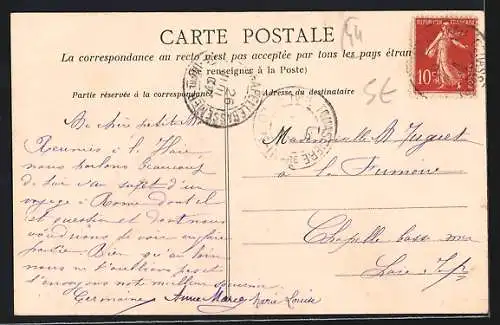 CARTE POSTALE
La correspondance au recto n'est pas acceptée par tous les pays étran
renseigner à la Poste)
Partie réservée à la correspondance
Adresse du destinataire
10
44
SE
Ma chère petite M
Réunies à la Haie
nous parlons beaucoup
de toi au sujet d'un
voyage à Rome dont il
est question et dont nous
voudrions te voir faire
partie. Bien qu'au loin
nous ne t'oublions pas et
t'envoyons notre meilleur souvenir
Germaine Anne Marie Marie Louise
Mademoiselle M.
à la
Chapelle basse mer
Loire Infre